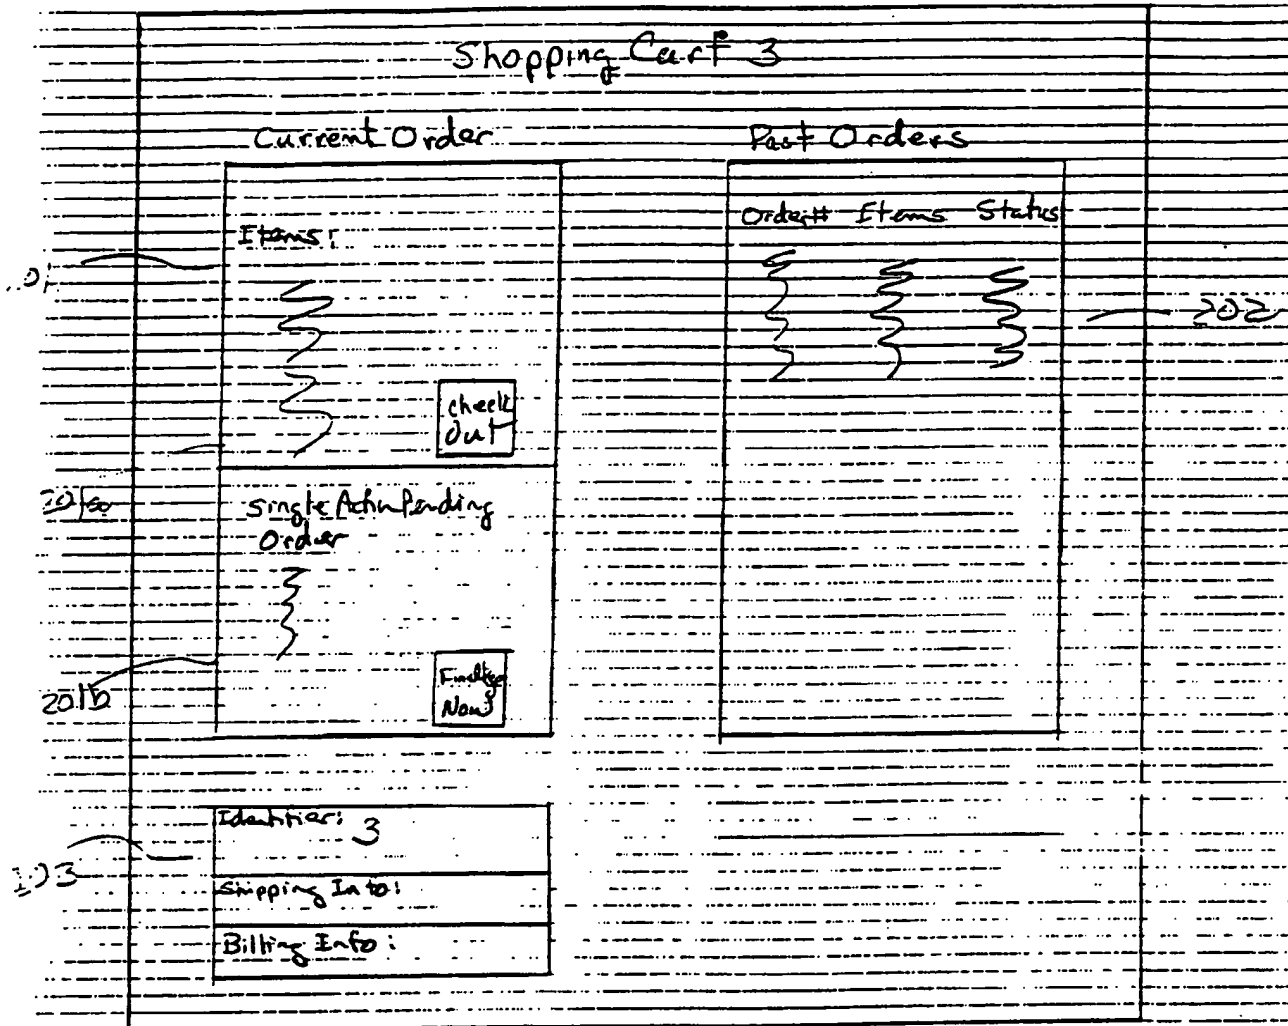 Shopping Cart 3
Current Order
Items:
check
out
Single Action Pending
Order
Finalize
Now
Past Orders
Order# Items Status
202
201b
Identifier: 3
Shipping Info:
Billing Info: